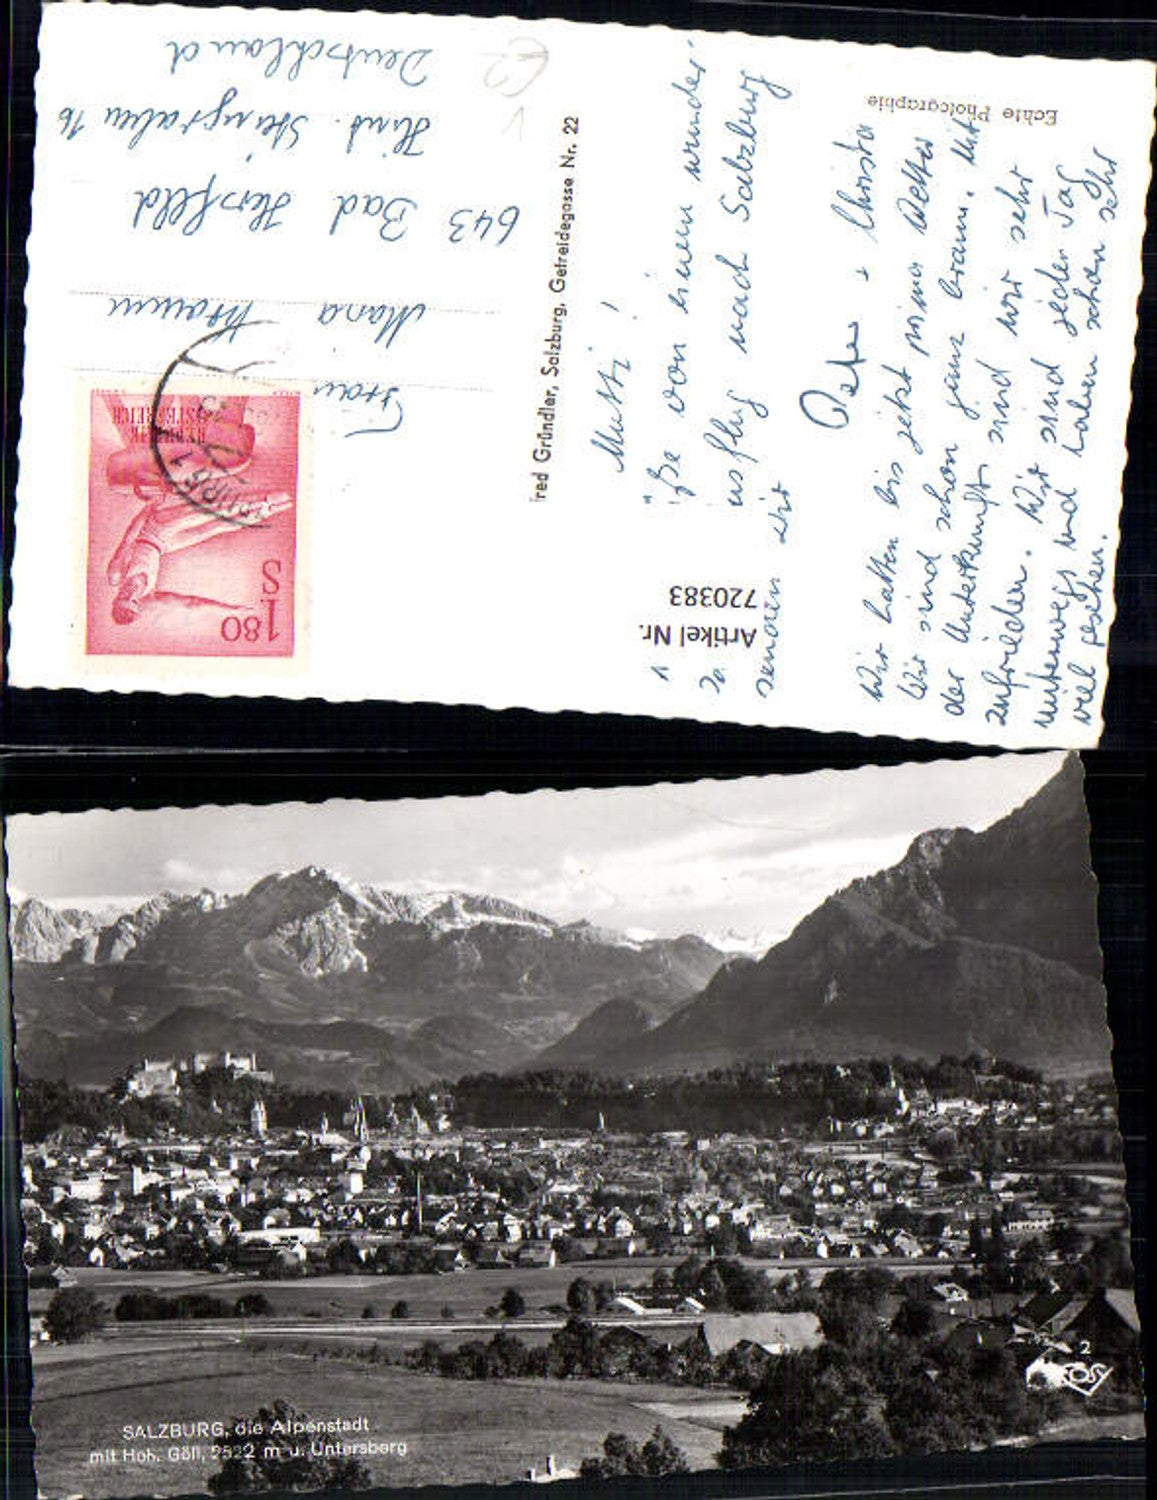 Echte Photographie
Mutti!
ße von einem wunder-
usflug nach Salzburg
senden dir
Peter + Christa
Wir hatten bis jetzt prima Wetter
Wir sind schon ganz braun. Mit
der Unterkunft sind wir sehr
zufrieden. Wir sind jeden Tag
unterwegs und haben schon sehr
viel gesehen.
Artikel Nr.
720383
red Gründler, Salzburg, Getreidegasse Nr. 22
Frau
Maria
643 Bad Hersfeld
Hint. Steingraben 16
Deutschland
S 1.80
REPUBLIK
ÖSTERREICH
SALZBURG, die Alpenstadt
mit Hoh. Göll, 2522 m u. Untersberg
2
COSY